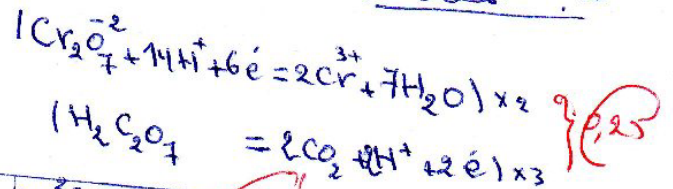 (Cr₂O₇⁻² + 14H⁺ + 6é = 2Cr³⁺ + 7H₂O) × 2
(H₂C₂O₇ = 2CO₂ + 2H⁺ + 2é) × 3
0,25